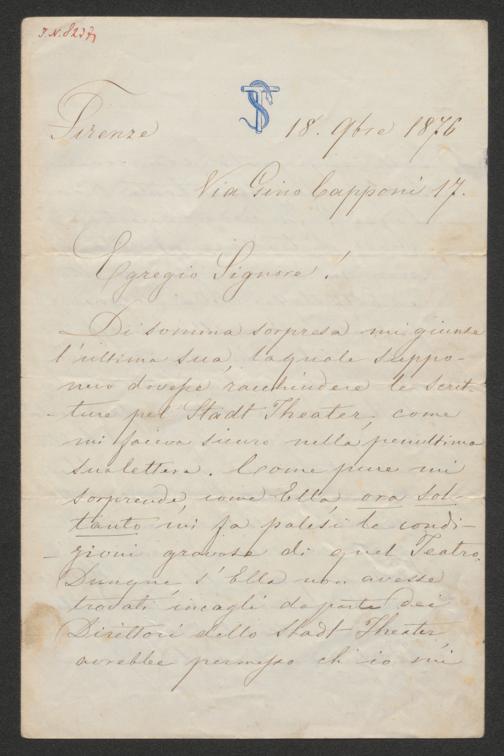 I.N. 8237
TS
Firenze 18. 9bre 1876
Via Gino Capponi 17.
Egregio Signore!
Di somma sorpresa mi giunse
l'ultima sua, laquale suppo-
nevo dovesse racchiudere le scrit-
ture pel Stadt Theater, come
mi faceva sicuro nella penultima
sua lettera. Come pure mi
sorprende, come Ella, ora sol-
tanto mi fa palesi le condi-
zioni gravose di quel Teatro.
Dunque, s'Ella non avesse
trovati incagli da parte dei
Direttori dello Stadt Theater,
avrebbe permesso ch'io mi